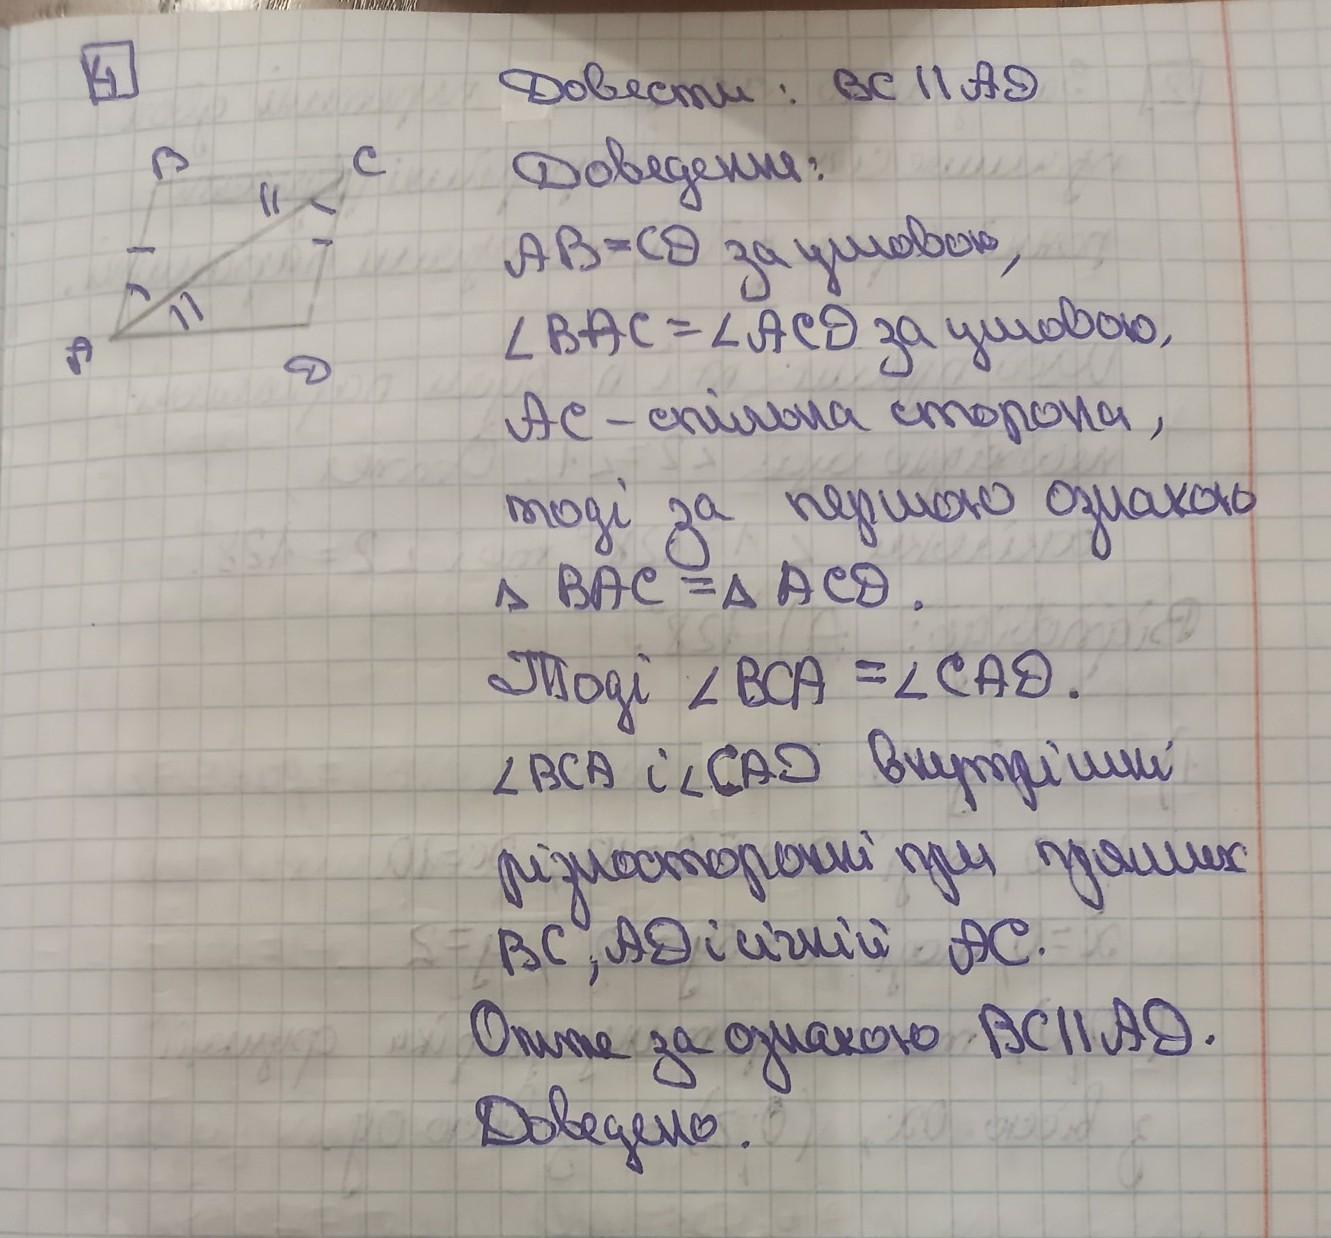 4
Довести: BC || AD
B
C
A
D
Доведення:
AB=CD за умовою,
∠BAC=∠ACD за умовою,
AC – спільна сторона,
тоді за першою ознакою
△ BAC = △ ACD.
Тоді ∠BCA = ∠CAD.
∠BCA і ∠CAD внутрішні
різносторонні при прямих
BC, AD і січній AC.
Отже за ознакою BC || AD.
Доведено.